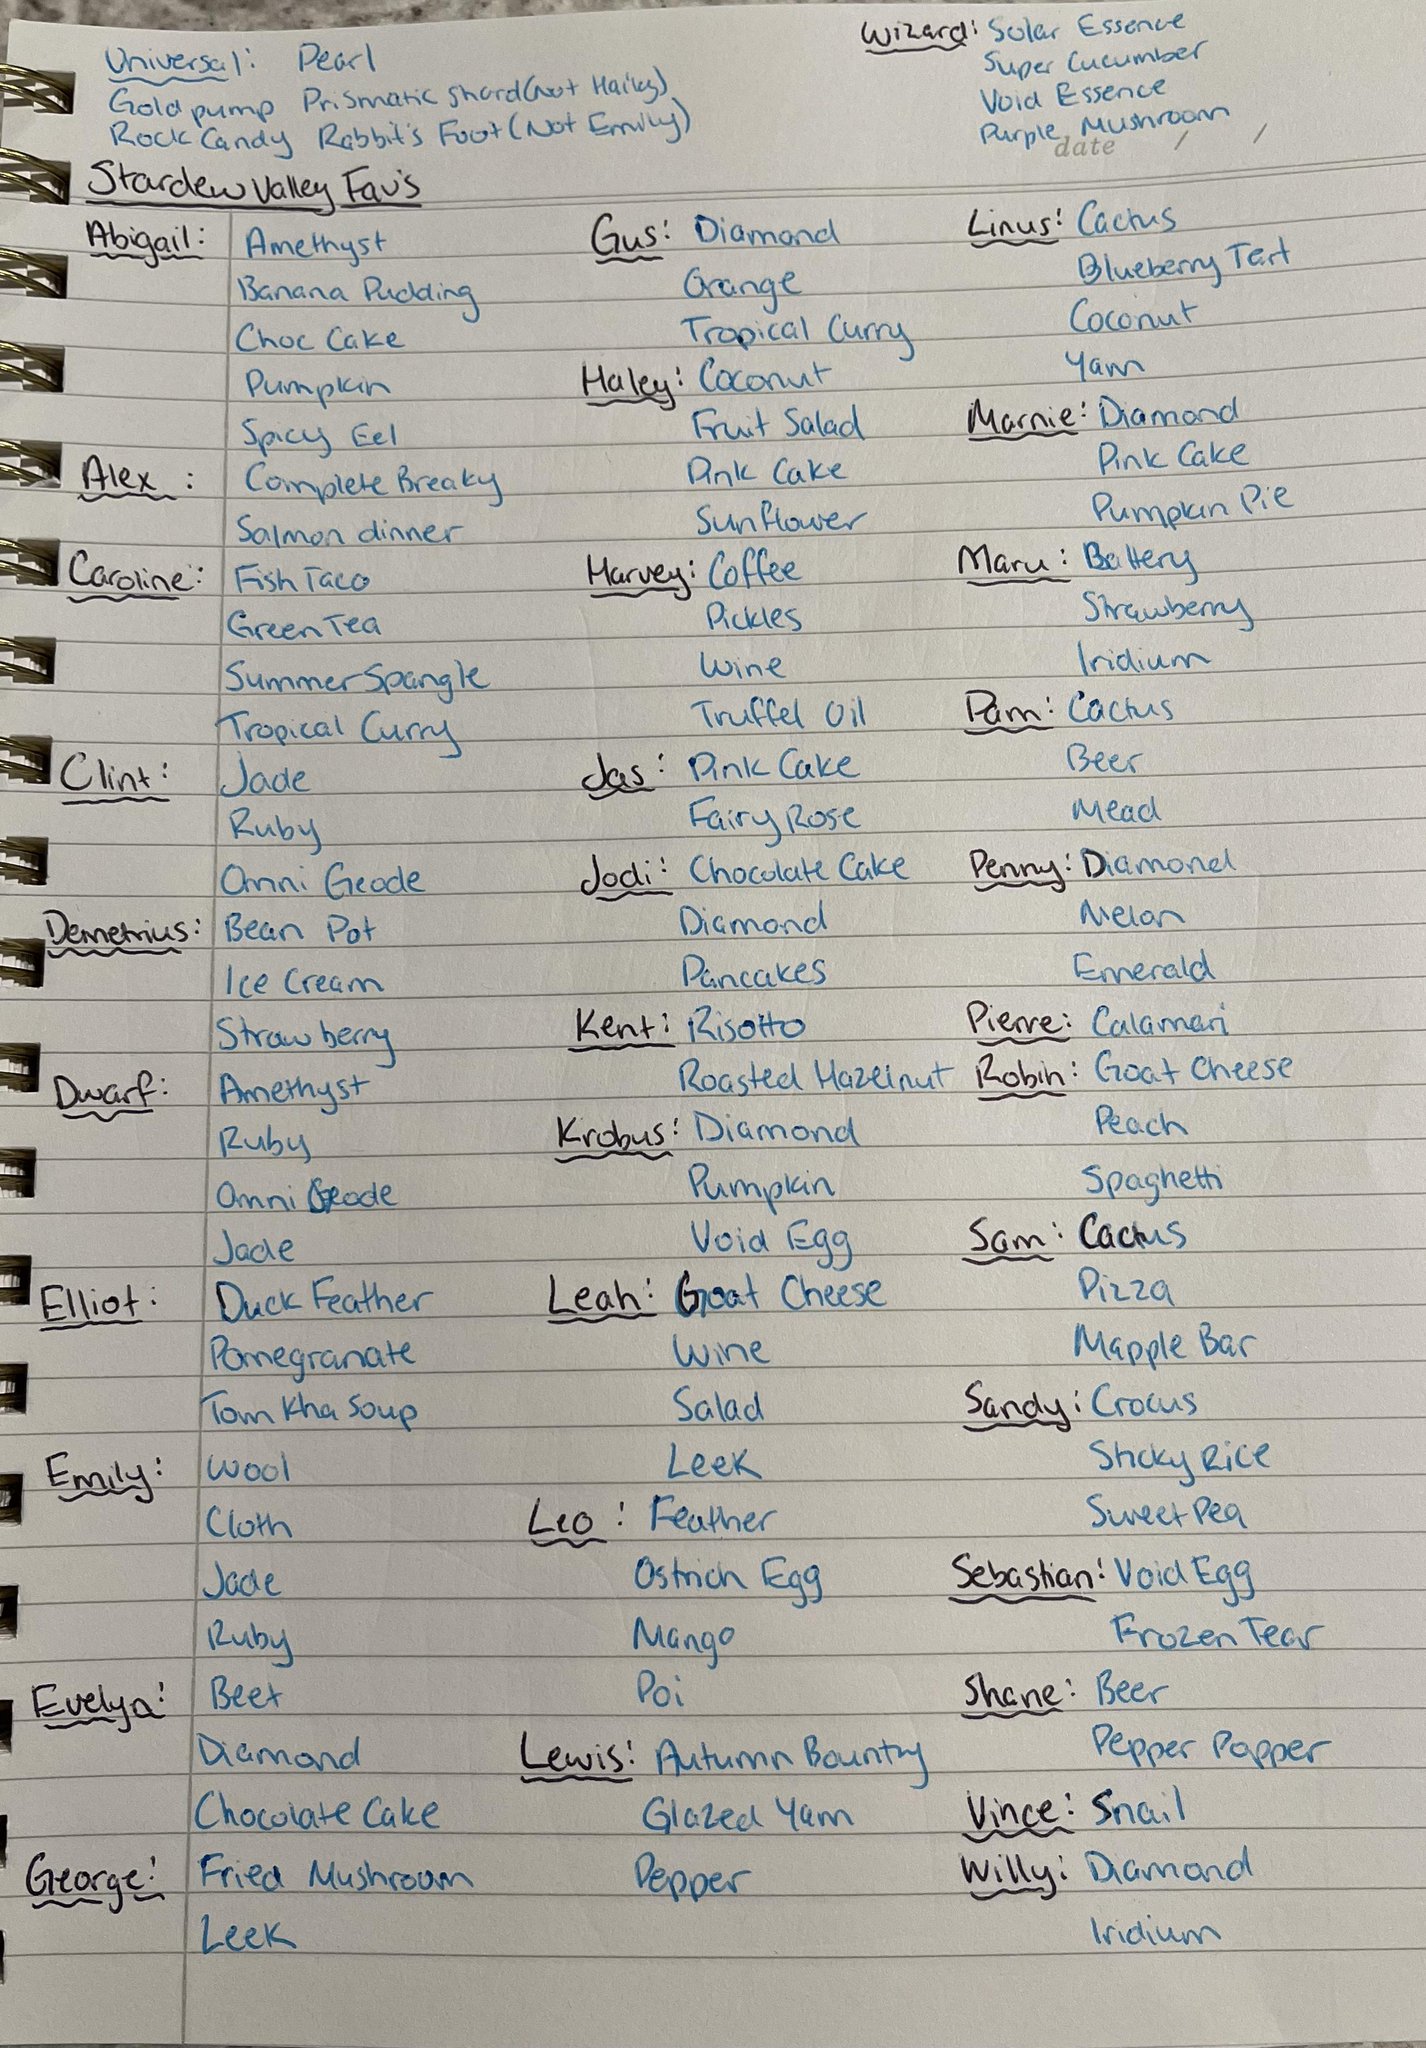 Universal: Pearl
Gold pump Prismatic Shard (Not Hailey)
Rock Candy Rabbit's Foot (Not Emily)
Wizard: Solar Essence
Super Cucumber
Void Essence
Purple Mushroom
date / /
Stardew Valley Fav's
Abigail: Amethyst
Banana Pudding
Choc Cake
Pumpkin
Spicy Eel
Alex: Complete Breaky
Salmon dinner
Caroline: Fish Taco
Green Tea
Summer Spangle
Tropical Curry
Clint: Jade
Ruby
Omni Geode
Demetrius: Bean Pot
Ice Cream
Strawberry
Dwarf: Amethyst
Ruby
Omni Geode
Jade
Elliot: Duck Feather
Pomegranate
Tom Kha Soup
Emily: Wool
Cloth
Jade
Ruby
Evelyn: Beet
Diamond
Chocolate Cake
George: Fried Mushroom
Leek
Gus: Diamond
Orange
Tropical Curry
Haley: Coconut
Fruit Salad
Pink Cake
Sunflower
Harvey: Coffee
Pickles
Wine
Truffel Oil
Jas: Pink Cake
Fairy Rose
Jodi: Chocolate Cake
Diamond
Pancakes
Kent: Risotto
Roasted Hazelnut
Krobus: Diamond
Pumpkin
Void Egg
Leah: Goat Cheese
Wine
Salad
Leek
Leo: Feather
Ostrich Egg
Mango
Poi
Lewis: Autumn Bountry
Glazed Yam
Pepper
Linus: Cactus
Blueberry Tart
Coconut
Yam
Marnie: Diamond
Pink Cake
Pumpkin Pie
Maru: Battery
Strawberry
Iridium
Pam: Cactus
Beer
Mead
Penny: Diamond
Melon
Emerald
Pierre: Calamari
Robin: Goat Cheese
Peach
Spaghetti
Sam: Cactus
Pizza
Mapple Bar
Sandy: Crocus
Sticky Rice
Sweet Pea
Sebastian: Void Egg
Frozen Tear
Shane: Beer
Pepper Popper
Vince: Snail
Willy: Diamond
Iridium